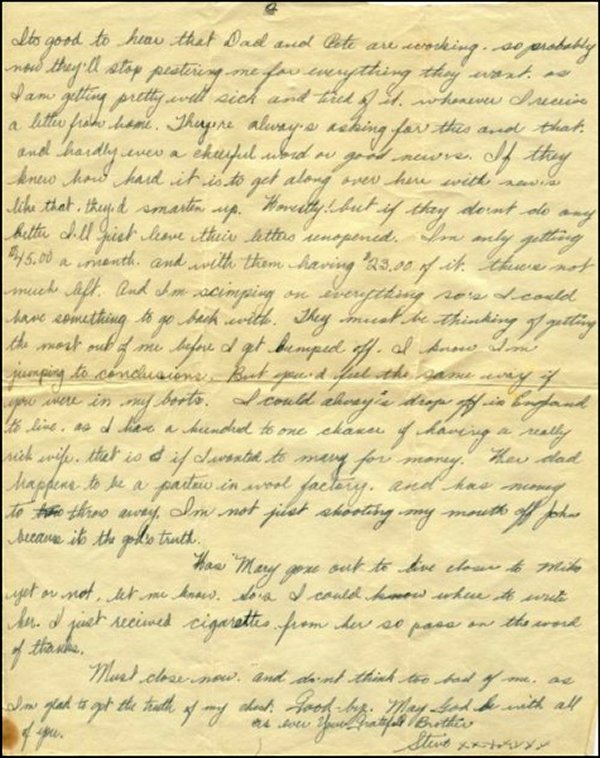 2
Its good to hear that Dad and Pete are working. so probably
now they'll stop pestering me for everything they want. as
I am getting pretty well sick and tired of it. whenever I receive
a letter from home. They're always asking for this and that.
and hardly ever a cheerful word or good news. If they
knew how hard it is to get along over here with news
like that. they'd smarten up. Honestly! but if they dont do any
better I'll just leave their letters unopened. I'm only getting
$45.00 a month. and with them having $23.00 of it. there's not
much left. And I'm scimping on everything so's I could
have something to go back with. They must be thinking of getting
the most out of me before I get bumped off. I know I'm
jumping to conclusions. But you'd feel the same way if
you were in my boots. I could always drop off in England
to live. as I have a hundred to one chance of having a really
rich wife. that is if I wanted to marry for money. Her dad
happens to be a partner in wool factory. and has money
to throw away. I'm not just shooting my mouth off John
because its the god's truth.
Has Mary gone out to live closer to Mike
yet or not, let me know. so's I could know where to write
her. I just recieved cigarettes from her so pass on the word
of thanks.
Must close now. and dont think too bad of me. as
I'm glad to get the truth of my chest. Good-bye. May God be with all
of you.
as ever Your Grateful Brother
Steve xxxxxxx